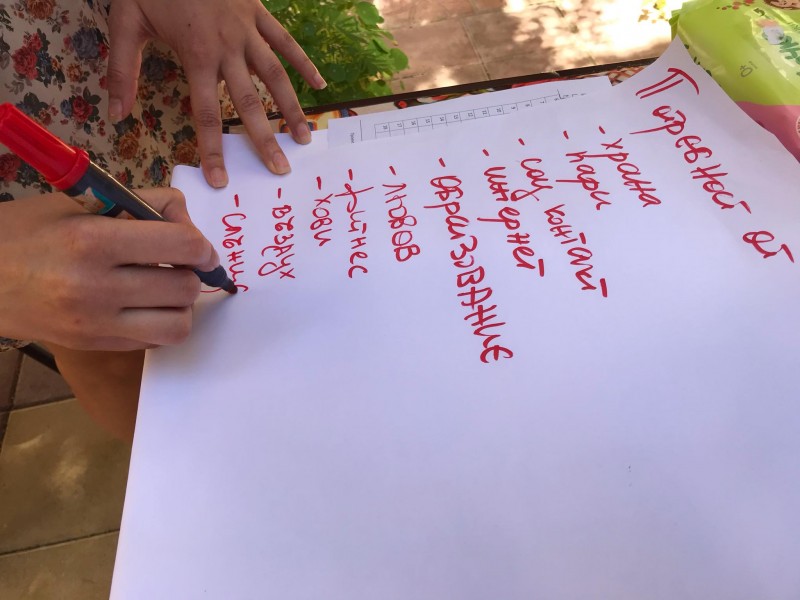 Потребност от
- храна
- пари
- соц контакт
- интернет
- образование
- любов
- фитнес
- хоби
- въздух
- слънце